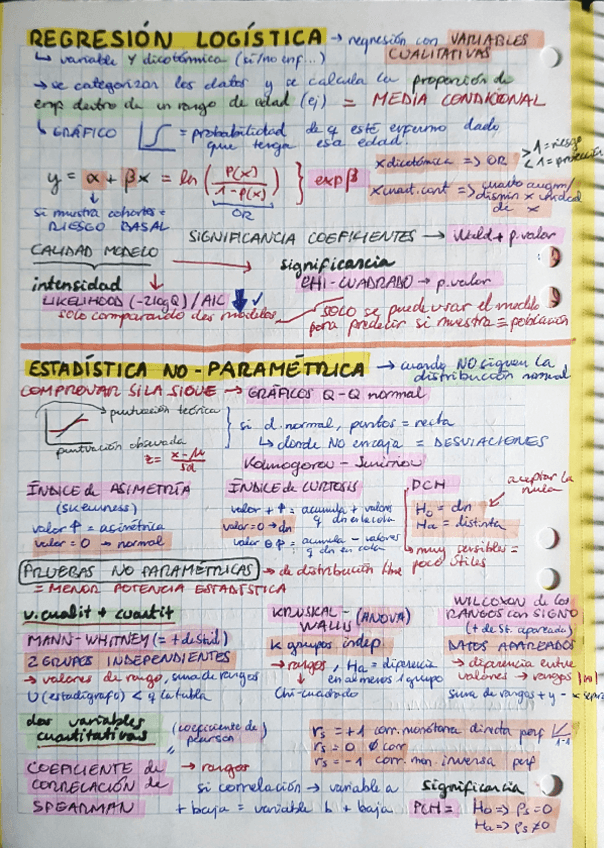 REGRESIÓN LOGÍSTICA → regresión con VARIABLES CUALITATIVAS
↳ variable Y dicotómica (si/no enf...)
→ se categorizan los datos y se calcula la proporción de
enf dentro de un rango de edad (ej) = MEDIA CONDICIONAL
↳ GRÁFICO = probabilidad de q esté enfermo dado que tenga esa edad.
y = α + βx = ln (P(x) / 1-P(x)) } exp β
OR
x dicotómica => OR > 1 = riesgo
< 1 = protección
x cuant. cont => cuanto aum/
dismin x unidad
de x
si muestra cohortes =
RIESGO BASAL
SIGNIFICANCIA COEFICIENTES → Wald + p.valor
CALIDAD MODELO
intensidad
significancia
LIKELIHOOD (-2logQ) / AIC ↓ ✓
CHI-CUADRADO → p.valor
solo comparando dos modelos
SOLO se puede usar el modelo
para predecir si muestra = población
ESTADÍSTICA NO-PARAMÉTRICA → cuando NO siguen la
distribución normal
COMPROVAR SI LA SIGUE → GRÁFICOS Q-Q normal
puntuación teórica
puntuación observada
si d. normal, puntos = recta
↳ donde NO encaja = DESVIACIONES
z = x-μ / sd
Kolmogorov - Smirnov
ÍNDICE de ASIMETRÍA
(skewness)
valor ↑ = asimétrica
valor = 0 → normal
ÍNDICE de CURTOSIS
valor + ↑ = acumula + valores
q dn en la cola
valor = 0 → dn
valor ⊖ ↑ = acumula - valores
q dn en cola
PCH
aceptar la
nula
H₀ = dn
Ha = distinta
↳ muy sensibles =
poco útiles
PRUEBAS NO PARAMÉTRICAS → de distribución libre
= MENOR POTENCIA ESTADÍSTICA
v. cualit + cuantit
MANN-WHITNEY (= t de St.)
2 GRUPOS INDEPENDIENTES
→ valores de rango, suma de rangos
U (estadígrafo) < q la tabla
KRUSKAL-
WALLIS (ANOVA)
K grupos indep
→ rangos, Ha = diferencia
en al menos 1 grupo
↓
Chi-cuadrado
WILCOXON de los
RANGOS con SIGNO
(t de St. apareada)
DATOS APAREADOS
→ diferencia entre
valores → rangos
suma de rangos + y -
dos variables
cuantitativas
(coeficiente de
pearson)
COEFICIENTE de
CORRELACIÓN de
SPEARMAN
→ rangos
rs = +1 corr. monótona directa perf
rs = 0 ∅ corr
rs = -1 corr. mon. inversa perf
1-1
si correlación → variable a
+ baja = variable b + baja
significancia
PCH = H₀ => ρs = 0
Ha => ρs ≠ 0